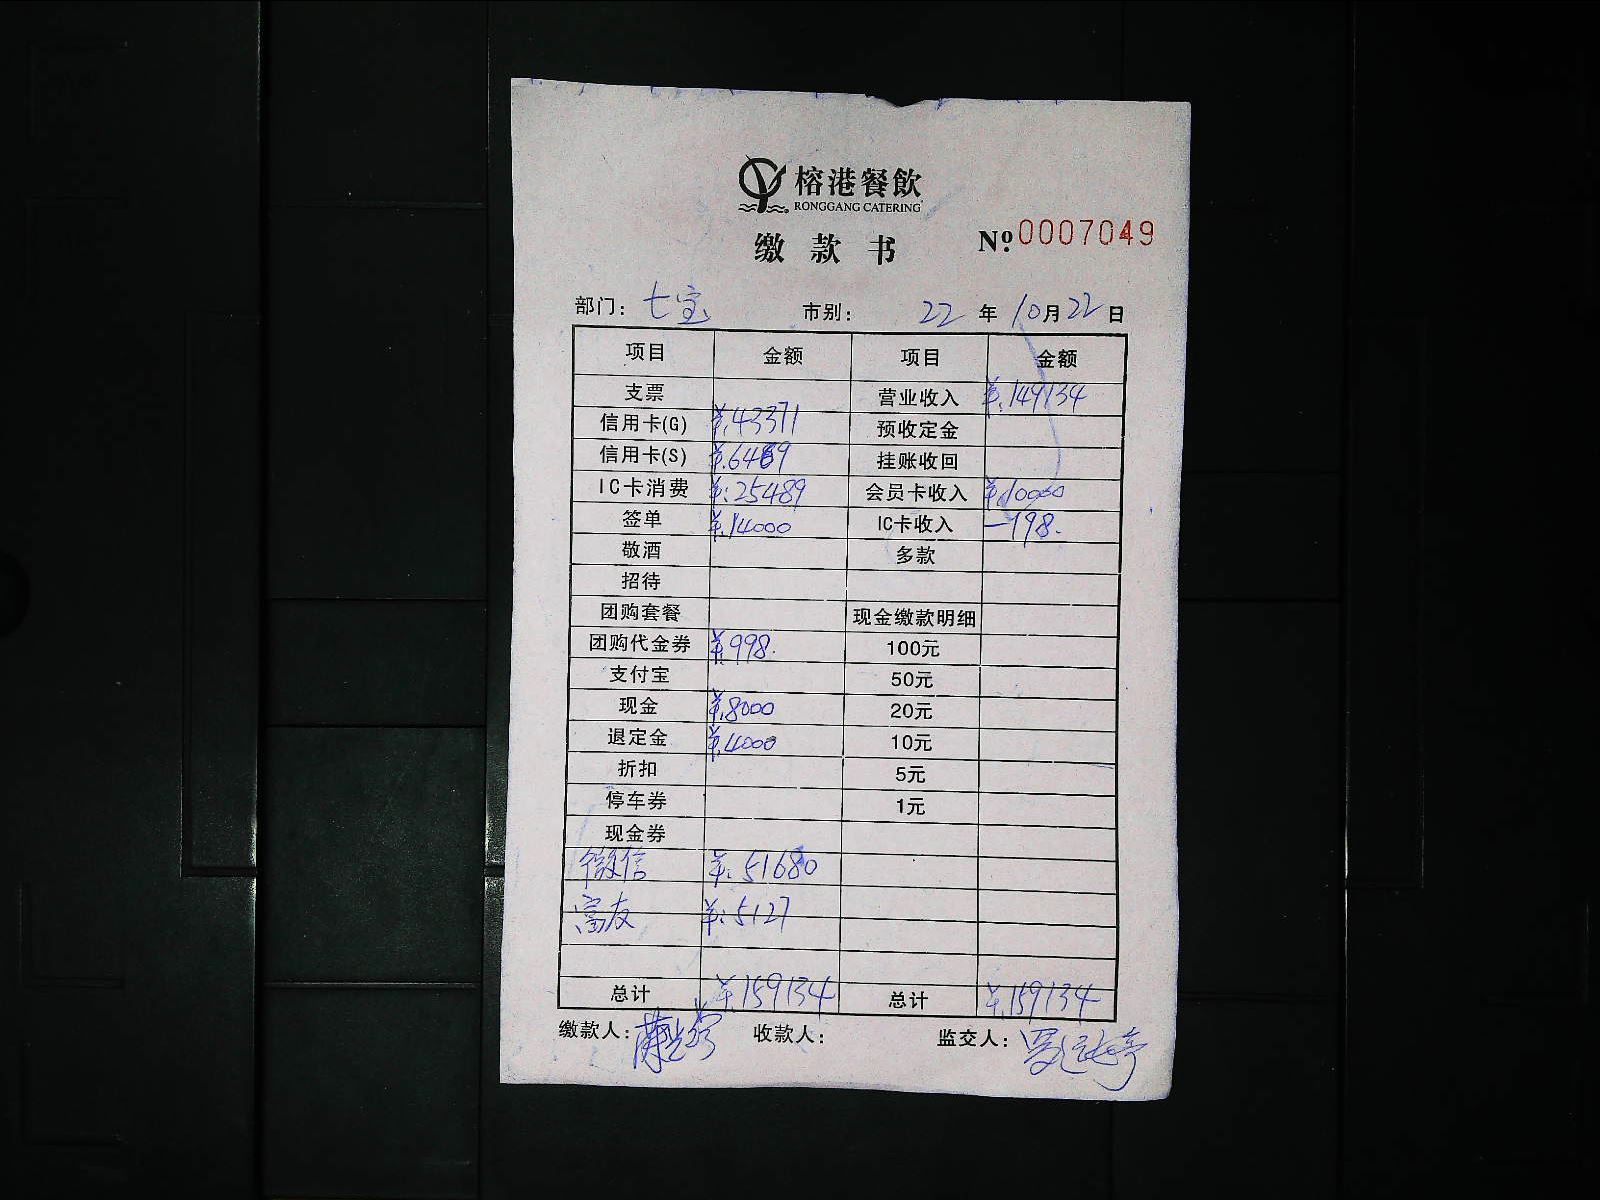 榕港餐飲
RONGGANG CATERING
缴款书 Nº 0007049
部门: 七宝 市别: 22 年 10 月 22 日
项目 金额 项目 金额
支票 营业收入 ¥:149134
信用卡(G) ¥:43371 预收定金
信用卡(S) ¥:6469 挂账收回
IC卡消费 ¥:25489 会员卡收入 ¥:10000
签单 ¥:14000 IC卡收入 -198.
敬酒 多款
招待
团购套餐 现金缴款明细
团购代金券 ¥:998. 100元
支付宝 50元
现金 ¥:8000 20元
退定金 ¥:4000 10元
折扣 5元
停车券 1元
现金券
微信 ¥:51680
富友 ¥:5127
总计 ¥:159134 总计 ¥:159134
缴款人: 收款人: 监交人: